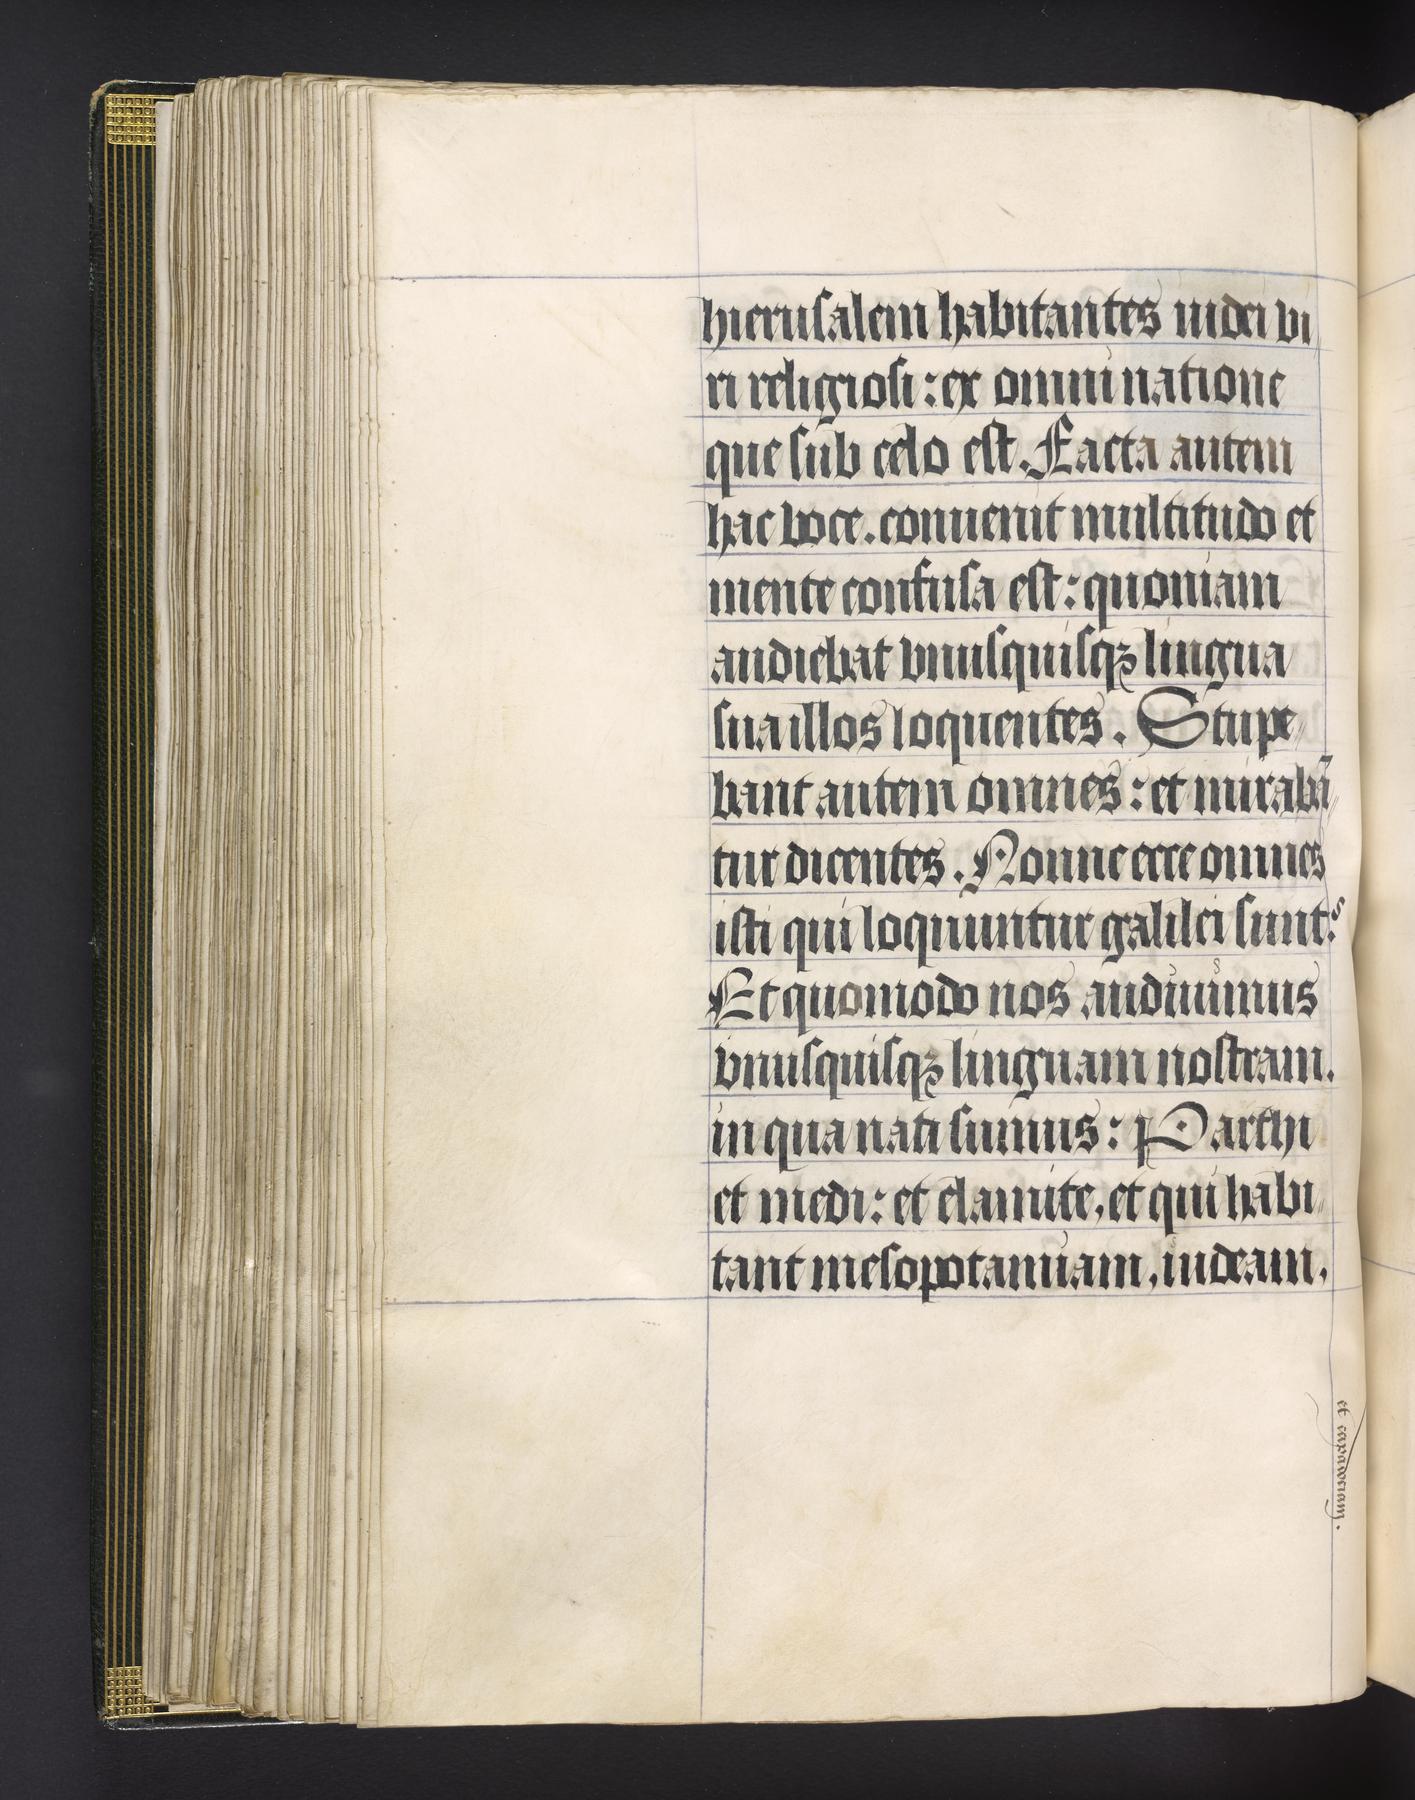 hierusalem habitantes iudei vi
ri religiosi : ex omni natione
que sub celo est. Facta autem
hac voce. conuenit multitudo et
mente confusa est : quoniam
audiebat vnusquisqȝ lingua
sua illos loquentes. Stupe„
bant autem omnes : et mirabā„
tur dicentes. Nonne ecce omnes
isti qui loquuntur galilei sunt?
Et quomodo nos audiuimus
vnusquisqȝ linguam nostram.
in qua nati sumus : Parthi
et medi : et elamite, et qui habi„
tant mesopotamiam, iudeam,
et capadociam.